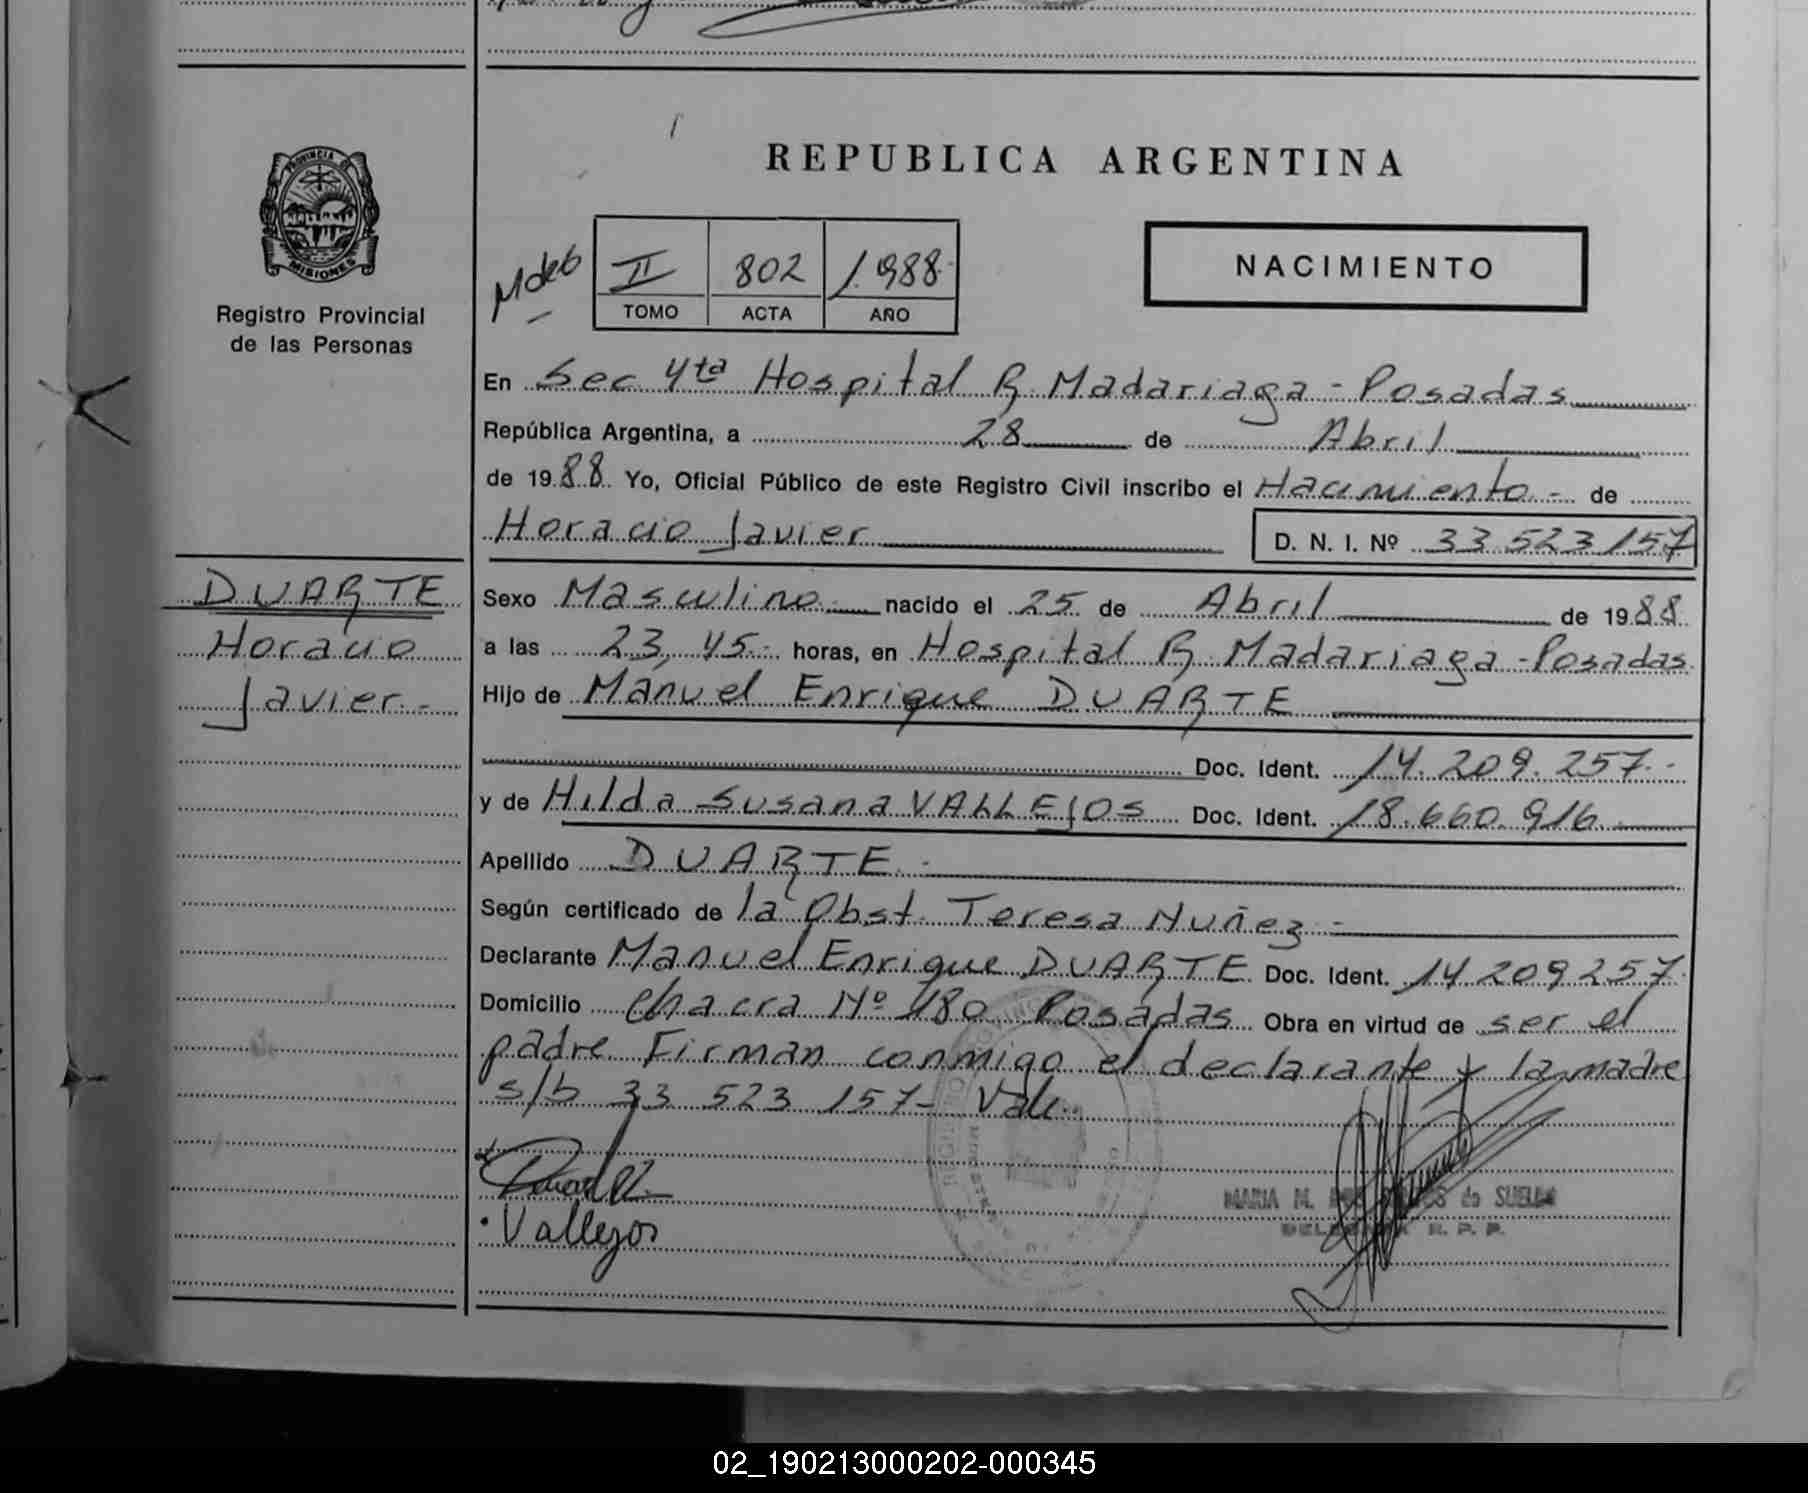 REPUBLICA ARGENTINA
PROVINCIA DE
MISIONES
Registro Provincial
de las Personas
II 802 1.988
TOMO ACTA AÑO
NACIMIENTO
En Sec 4ta Hospital R. Madariaga - Posadas
República Argentina, a 28 de Abril
de 1988. Yo, Oficial Público de este Registro Civil inscribo el Nacimiento - de
Horacio Javier D. N. I. Nº 33 523 157
DUARTE
Horacio
Javier.-
Sexo Masculino nacido el 25 de Abril de 1988
a las 23,45.- horas, en Hospital R. Madariaga - Posadas
Hijo de Manuel Enrique DUARTE
Doc. Ident. 14.209.257.-
y de Hilda Susana VALLEJOS Doc. Ident. 18.660.916
Apellido DUARTE.-
Según certificado de la Obst. Teresa Nuñez -
Declarante Manuel Enrique DUARTE Doc. Ident. 14 209 257.
Domicilio Chacra Nº 180 Posadas Obra en virtud de ser el
padre. Firman conmigo el declarante y la madre
s/b 33 523 157- Vale.
Vallejos
MARIA M. de SUELDO
02_190213000202-000345